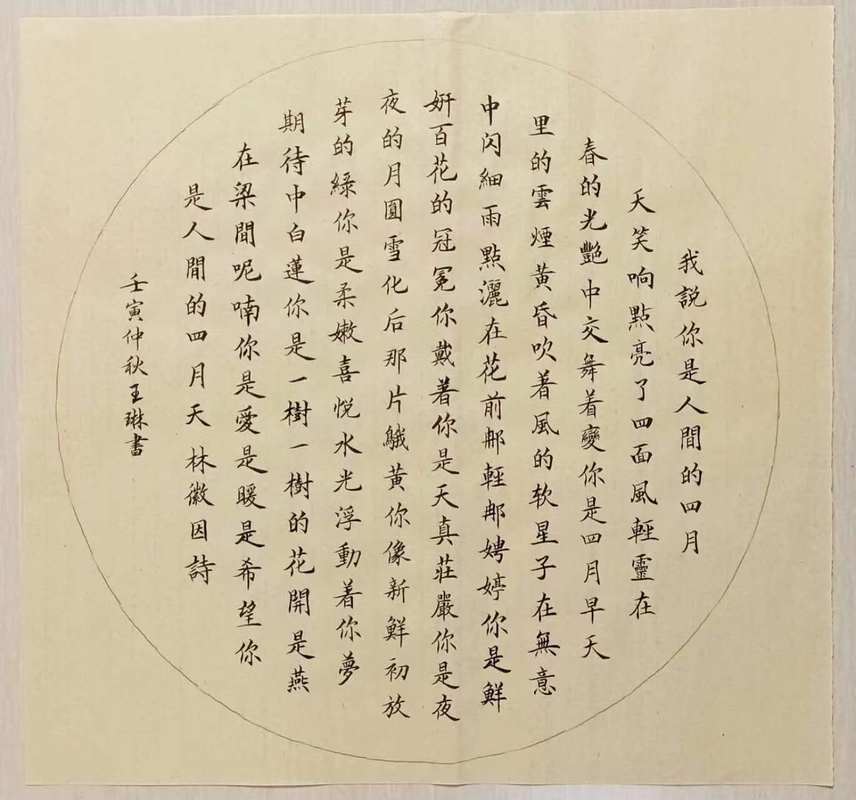 我說你是人間的四月
天笑响點亮了四面風輕靈在
春的光艷中交舞着變你是四月早天
里的雲煙黄昏吹着風的软星子在無意
中闪細雨點灑在花前那輕那娉婷你是鮮
妍百花的冠冕你戴著你是天真莊嚴你是夜
夜的月圓雪化后那片鵝黄你像新鮮初放
芽的綠你是柔嫩喜悅水光浮動着你夢
期待中白蓮你是一樹一樹的花開是燕
在梁間呢喃你是愛是暖是希望你
是人間的四月天林徽因詩
壬寅仲秋王琳書